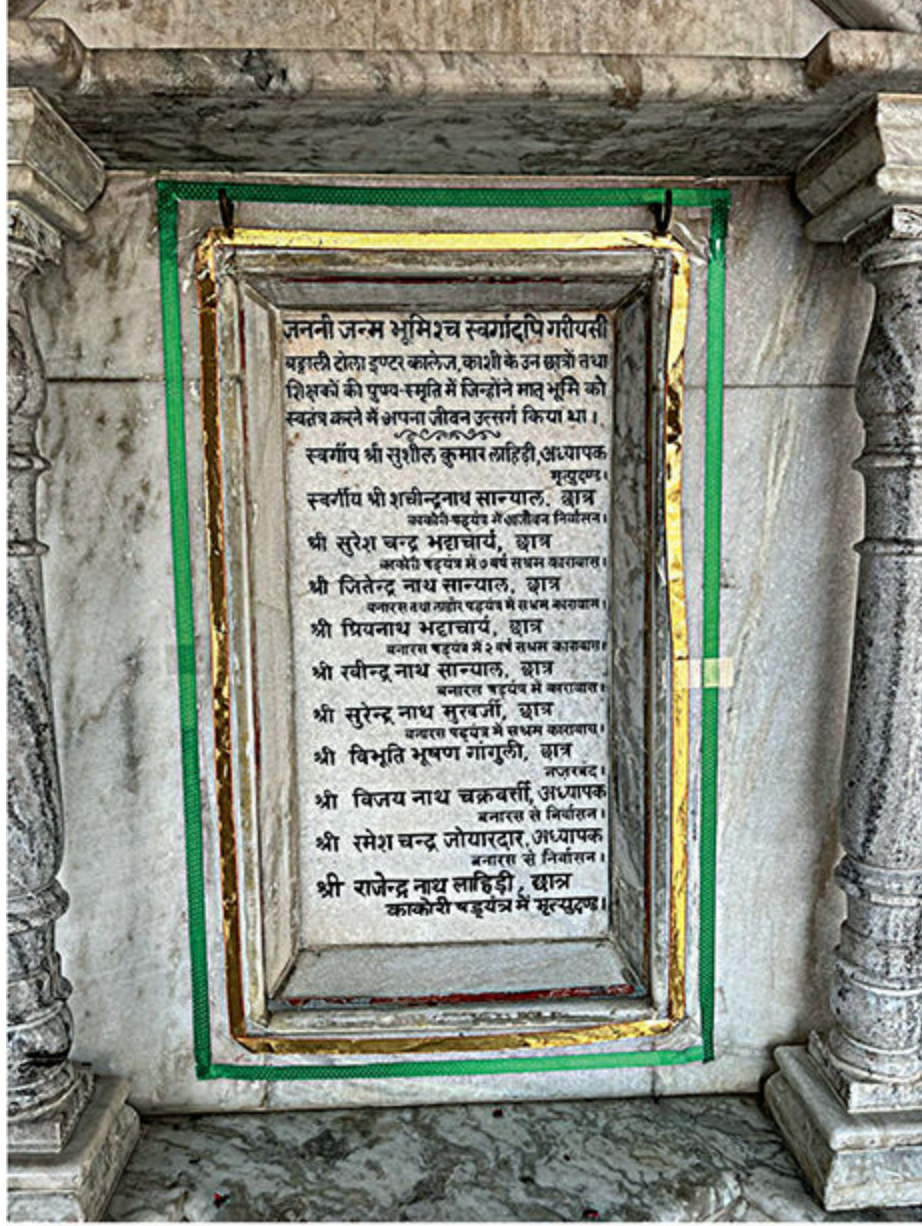 जननी जन्म भूमिश्च स्वर्गादपि गरीयसी
बङ्गाली टोला इण्टर कालेज, काशी के उन छात्रों तथा
शिक्षकों की पुण्य-स्मृति में जिन्होंने मातृ भूमि को
स्वतंत्र करने में अपना जीवन उत्सर्ग किया था।
स्वर्गीय श्री सुशील कुमार लाहिड़ी, अध्यापक
मृत्युदण्ड।
स्वर्गीय श्री शचीन्द्रनाथ सान्याल, छात्र
काकोरी षड्यंत्र में आजीवन निर्वासन।
श्री सुरेश चन्द्र भट्टाचार्य, छात्र
काकोरी षड्यंत्र में ७ वर्ष सश्रम कारावास।
श्री जितेन्द्र नाथ सान्याल, छात्र
बनारस तथा लाहौर षड्यंत्र में सश्रम कारावास।
श्री प्रियनाथ भट्टाचार्य, छात्र
बनारस षड्यंत्र में २ वर्ष सश्रम कारावास।
श्री रवीन्द्र नाथ सान्याल, छात्र
बनारस षड्यंत्र में कारावास।
श्री सुरेन्द्र नाथ मुखर्जी, छात्र
बनारस षड्यंत्र में सश्रम कारावास।
श्री विभूति भूषण गांगुली, छात्र
नजरबंद।
श्री विजय नाथ चक्रवर्त्ती, अध्यापक
बनारस से निर्वासन।
श्री रमेश चन्द्र जोयारदार, अध्यापक
बनारस से निर्वासन।
श्री राजेन्द्र नाथ लाहिड़ी, छात्र
काकोरी षड्यंत्र में मृत्युदण्ड।